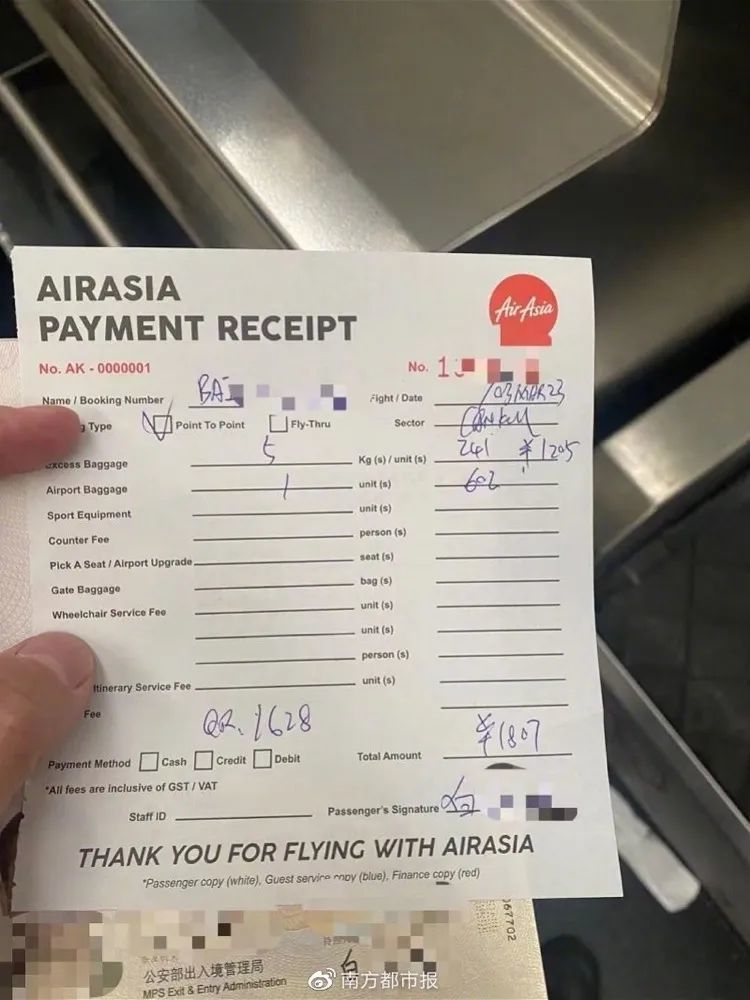 AIRASIA
PAYMENT RECEIPT
AirAsia
No. AK - 0000001
No. 1
Name / Booking Number BAI
Flight / Date /03MAR23
g Type Point To Point Fly-Thru
Sector CANKUL
Excess Baggage 5 Kg (s) / unit (s) 241 ¥1205
Airport Baggage 1 unit (s) 602
Sport Equipment unit (s)
Counter Fee person (s)
Pick A Seat / Airport Upgrade seat (s)
Gate Baggage bag (s)
Wheelchair Service Fee unit (s)
unit (s)
person (s)
Itinerary Service Fee unit (s)
Fee
QR. 1628
¥1807
Payment Method Cash Credit Debit
Total Amount
*All fees are inclusive of GST / VAT
Staff ID
Passenger's Signature 白
THANK YOU FOR FLYING WITH AIRASIA
*Passenger copy (white), Guest service copy (blue), Finance copy (red)
67702
公安部出入境管理局
MPS Exit & Entry Administration
南方都市报